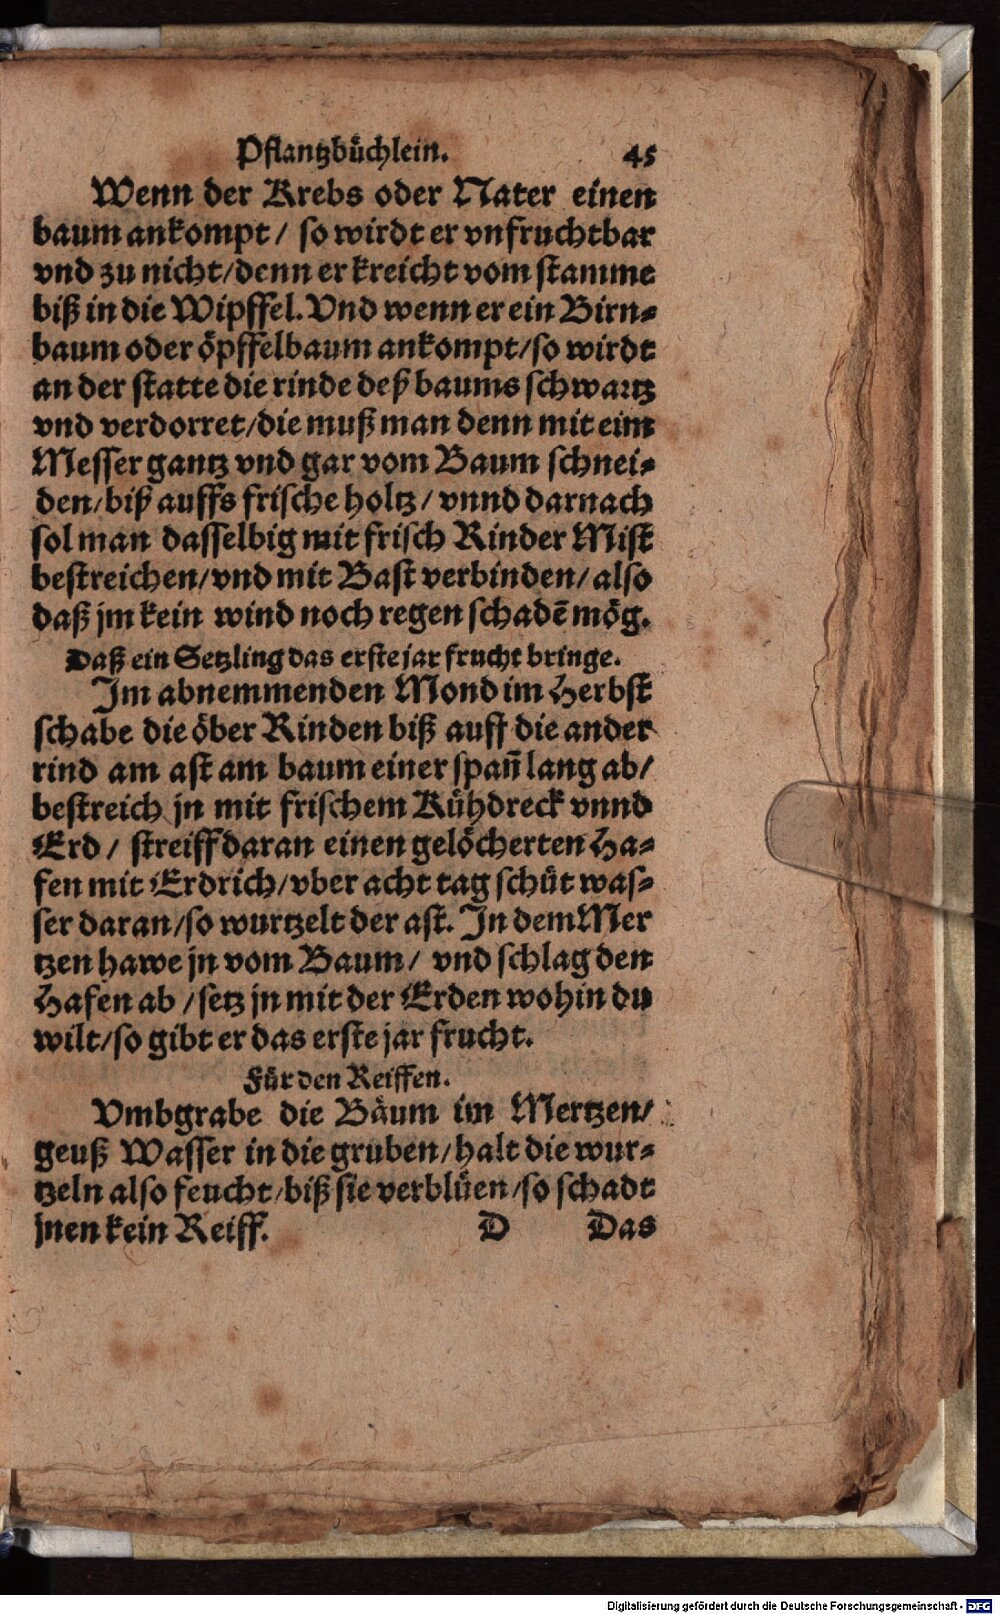 Pflantzbüchlein. 45
Wenn der Krebs oder Nater einen
baum ankompt / so wirdt er vnfruchtbar
vnd zu nicht/denn er kreicht vom stamme
biß in die Wipffel. Vnd wenn er ein Birn⸗
baum oder öpffelbaum ankompt/so wirdt
an der statte die rinde deß baums schwartz
vnd verdorret/die muß man denn mit eim
Messer gantz vnd gar vom Baum schnei⸗
den/biß auffs frische holtz / vnnd darnach
sol man dasselbig mit frisch Rinder Mist
bestreichen/vnd mit Bast verbinden/ also
daß jm kein wind noch regen schadē mög.
Daß ein Setzling das erste jar frucht bringe.
Im abnemmenden Mond im Herbst
schabe die öber Rinden biß auff die ander
rind am ast am baum einer spañ lang ab/
bestreich jn mit frischem Kühdreck vnnd
Erd / streiff daran einen gelöcherten Ha⸗
fen mit Erdrich/vber acht tag schüt was⸗
ser daran/so wurtzelt der ast. In dem Mer
tzen hawe jn vom Baum/ vnd schlag den
Hafen ab /setz jn mit der Erden wohin du
wilt/so gibt er das erste jar frucht.
Für den Reiffen.
Vmbgrabe die Bäum im Mertzen/
geuß Wasser in die gruben/halt die wur⸗
tzeln also feucht/biß sie verblüen/so schadt
jnen kein Reiff. D Das
Digitalisierung gefördert durch die Deutsche Forschungsgemeinschaft - DFG